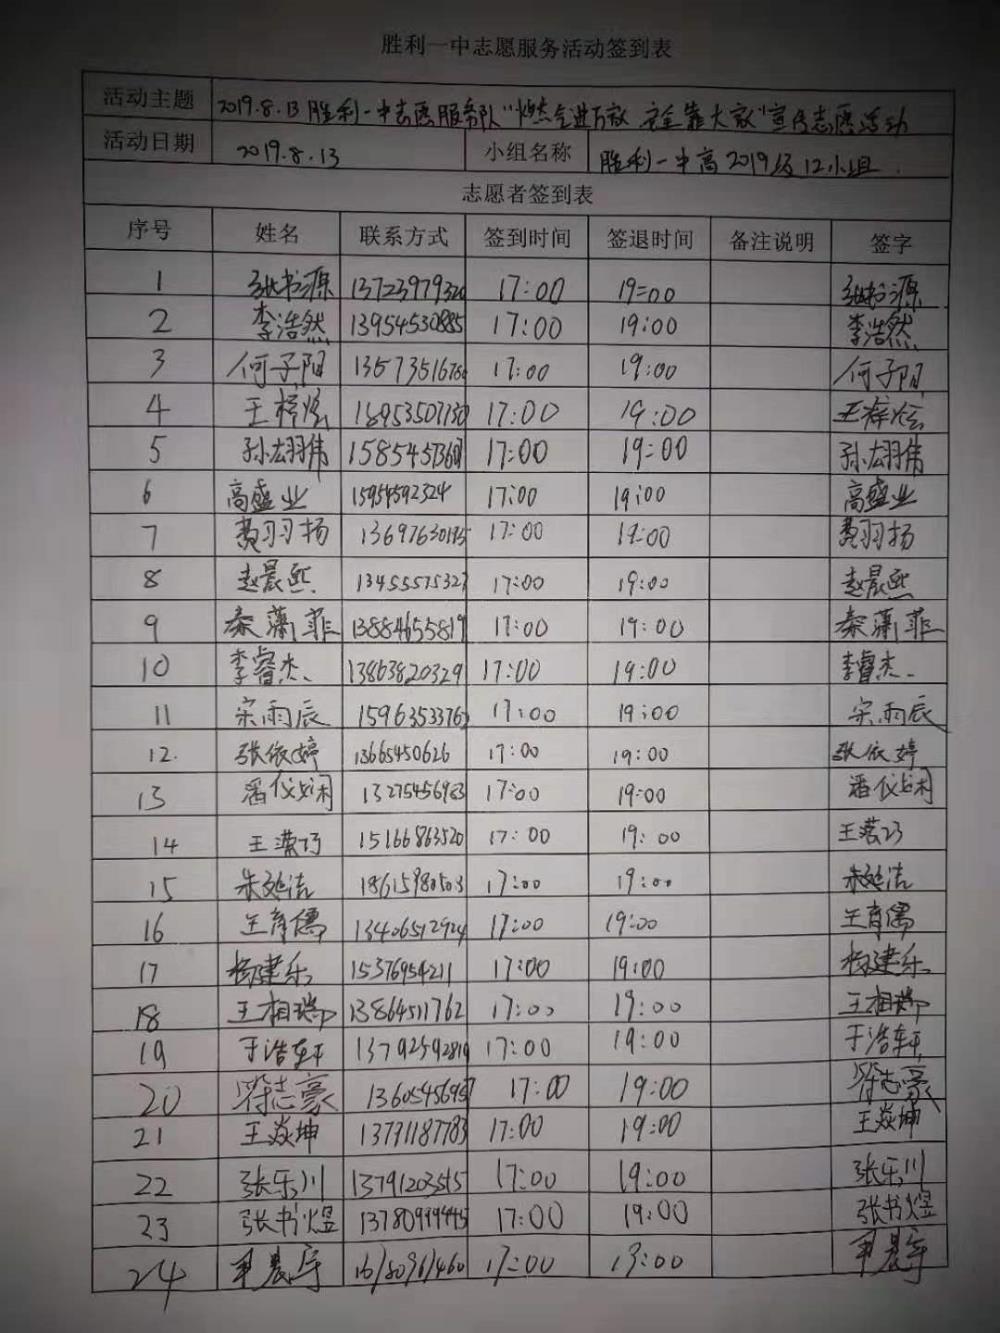 胜利一中志愿服务活动签到表
活动主题 2019.8.13胜利一中志愿服务队"燃气进万家 安全靠大家"宣传志愿活动
活动日期 2019.8.13 小组名称 胜利一中高2019级12小组.
志愿者签到表
序号 姓名 联系方式 签到时间 签退时间 备注说明 签字
1 张书源 13723979320 17:00 19:00 张书源
2 李浩然 13954530885 17:00 19:00 李浩然
3 何子阳 17:00 19:00 何子阳
4 王梓炫 17:00 19:00 王梓炫
5 孙翃伟 17:00 19:00 孙翃伟
6 高盛业 15954592324 17:00 19:00 高盛业
7 费羽扬 17:00 19:00 费羽扬
8 赵晨熙 13455575327 17:00 19:00 赵晨熙
9 秦蘅菲 13884655819 17:00 19:00 秦蘅菲
10 李睿杰 13863820329 17:00 19:00 李睿杰
11 宋雨辰 17:00 19:00 宋雨辰
12. 张依婷 13665450626 17:00 19:00 张依婷
13 潘仪娴 17:00 19:00 潘仪娴
14 王潆巧 15166863520 17:00 19:00 王潆巧
15 朱延洁 17:00 19:00 朱延洁
16 王育儒 13406512924 17:00 19:00 王育儒
17 杨建乐 15376954211 17:00 19:00 杨建乐
18 王相瑞 13864511762 17:00 19:00 王相瑞
19 于浩轩 13792592819 17:00 19:00 于浩轩
20 符志豪 17:00 19:00 符志豪
21 王焱坤 17:00 19:00 王焱坤
22 张乐川 13791203515 17:00 19:00 张乐川
23 张书煜 17:00 19:00 张书煜
24 17:00 19:00